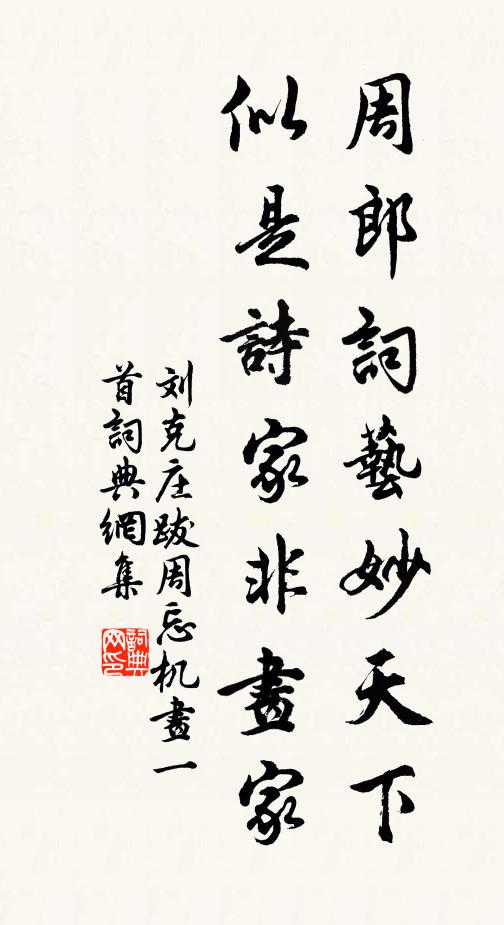 周郎詞藝妙天下
似是詩家非畫家
刘克庄跋周忘机畫一
首詞典網集
詞典
网印